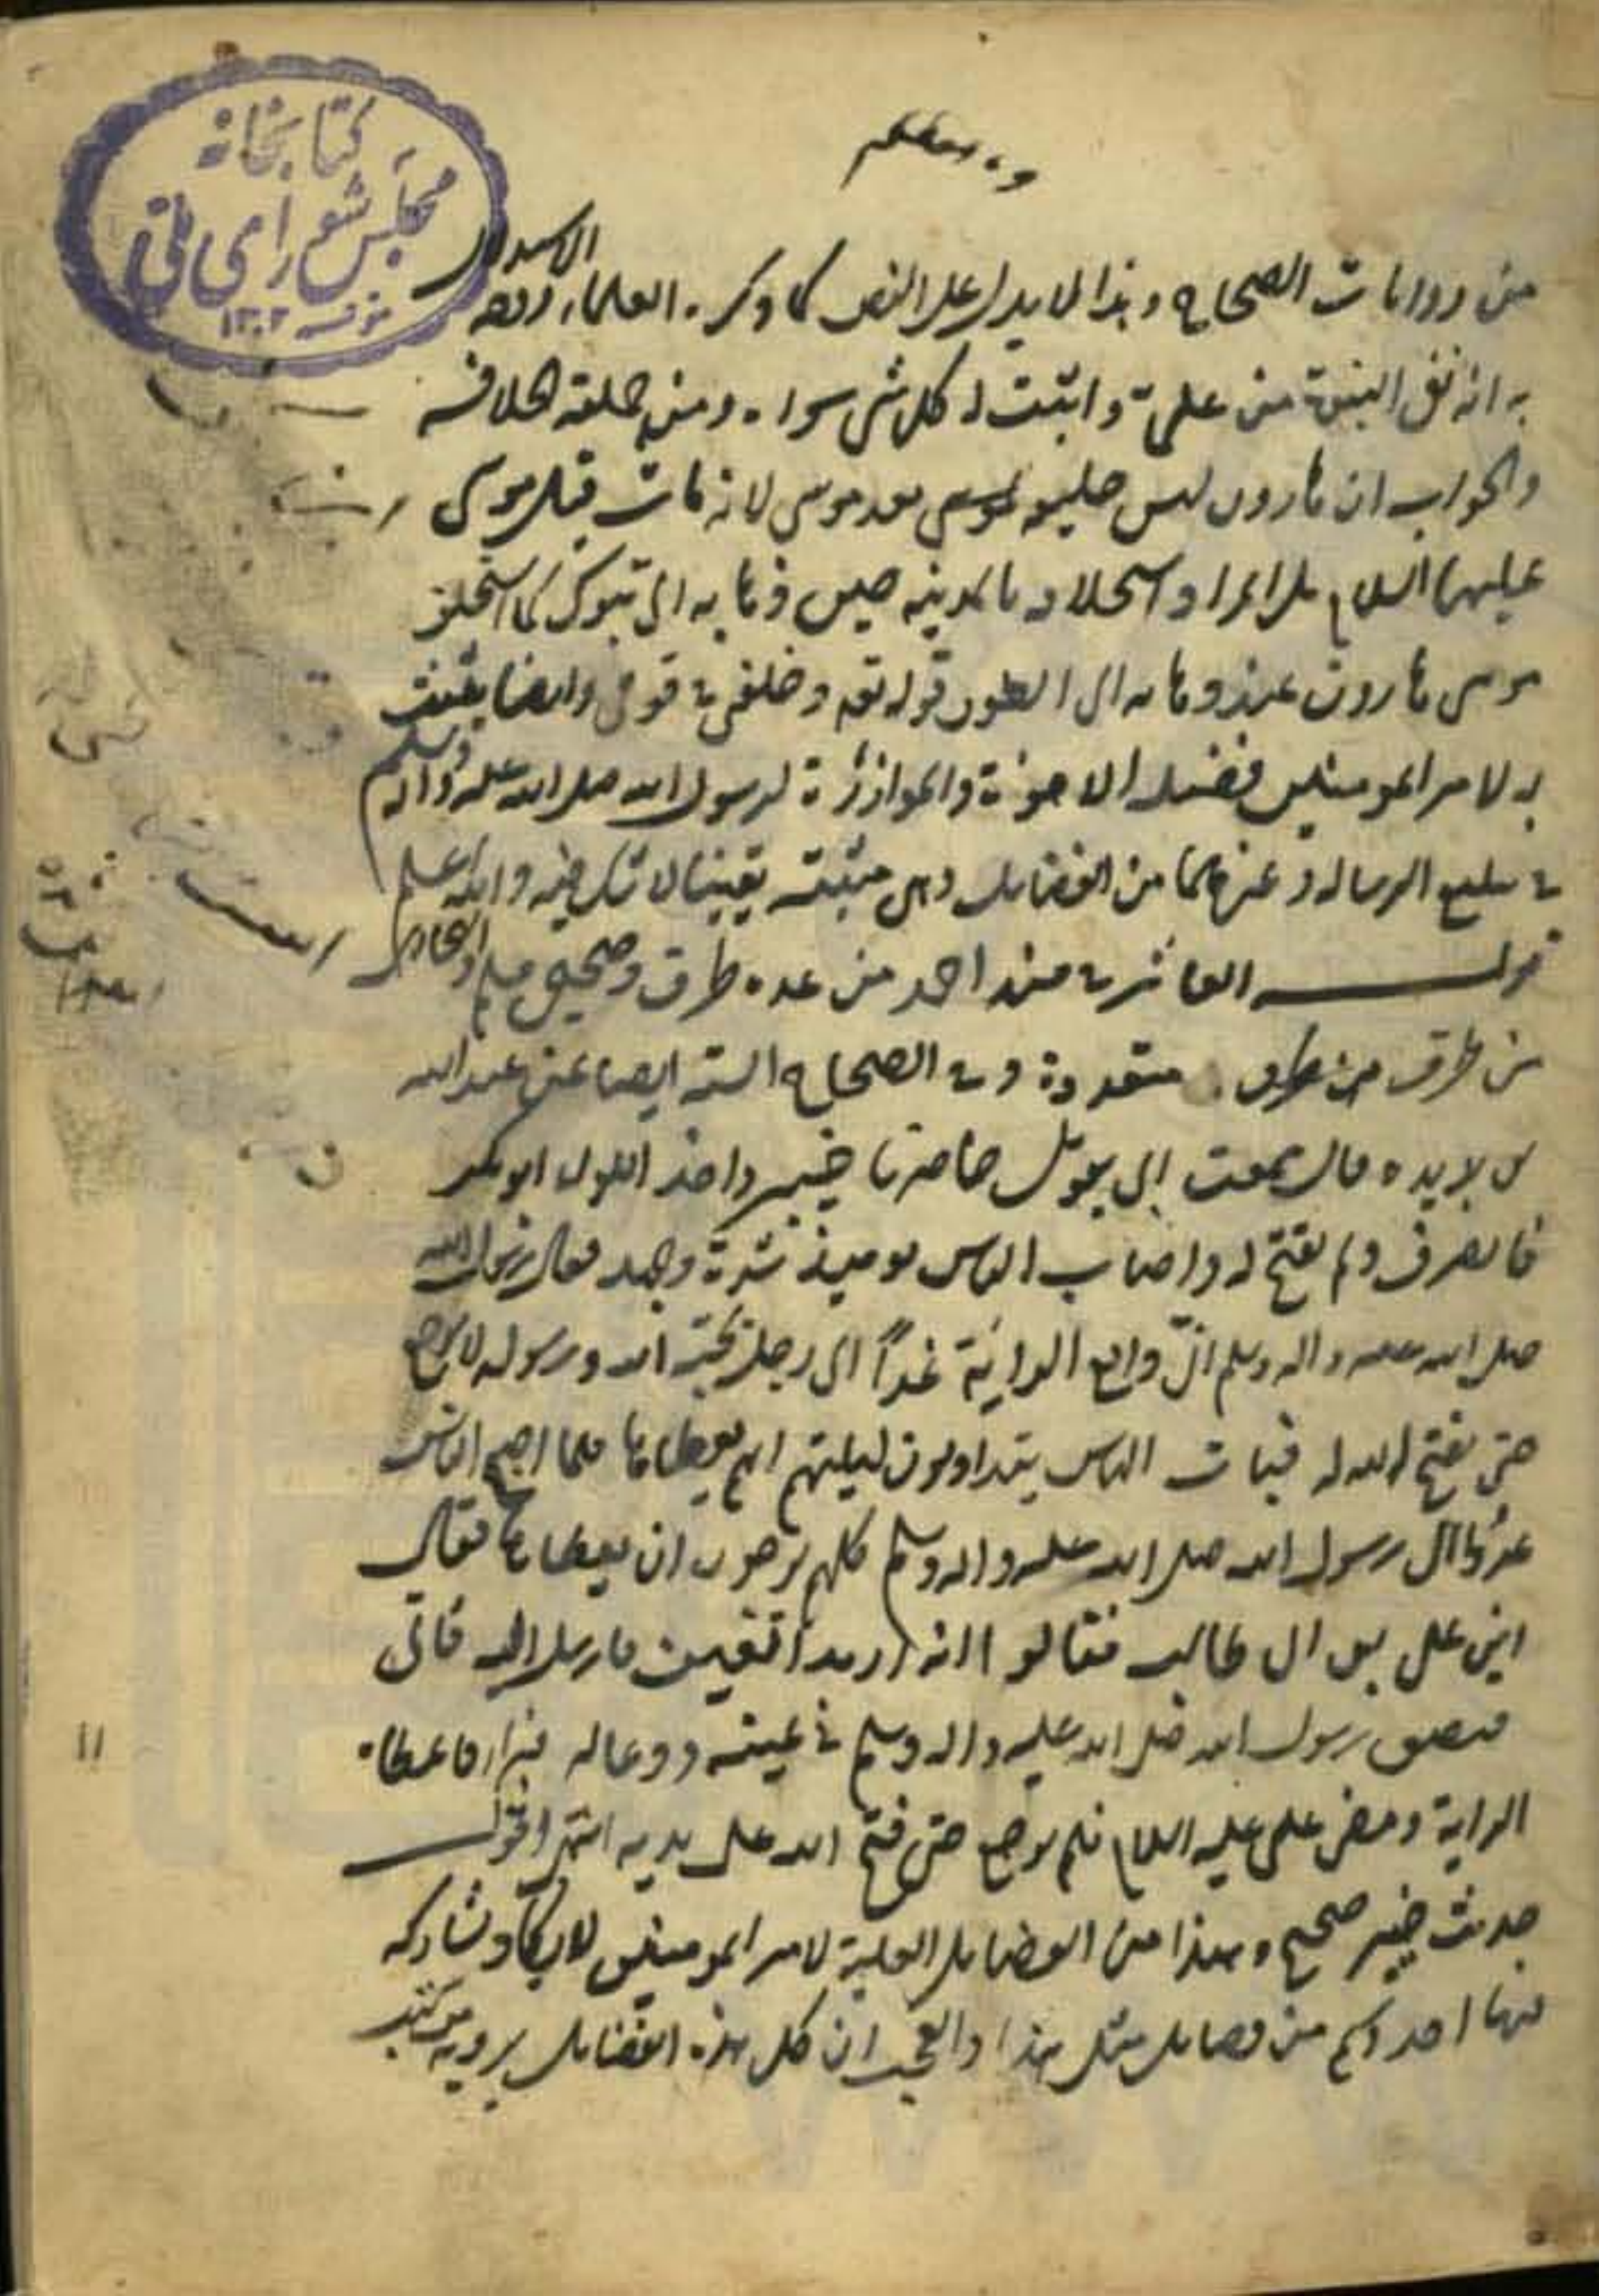 كتابخانه
مجلس شورای ملی
١٣٠٢
من روايات الصحاح وهذا لا يدل على النص كما ذكره العلماء ووجه الاستدلال
به انه نفى النبوة من علي و اثبت له كل شي سواه ومن جملته الخلافه
والجواب ان هارون ليس خليفه لموسى بعد موسى لانه مات قبل موسى
عليهما السلام بل المراد استخلافه بالمدينه حين ذهابه الى تبوك كما استخلف
موسى هارون عند ذهابه الى الطور قوله تعه وخلفني في قومي وايضا يثبت
به لامير المومنين فضيله الاخوة والموازرة لرسول الله صلى الله عليه واله وسلم
في تبليغ الرساله وغيرهما من الفضايل وهي مثبته يقينا لا شك فيه والله اعلم
قوله العاشر في مسند احمد من عده طرق وصحيحي مسلم والبخاري
من طرق من طرق متعددة وفي الصحاح الستة ايضا عن عبد الله
بن بريده قال سمعت ابي يقول حاصرنا خيبر واخذ اللوا ابو بكر
فانصرف ولم يفتح له واصاب الناس يوميذ شدة وجهد فقال رسول الله
صلى الله عليه واله وسلم اني دافع الراية غداً الى رجل يحبه الله ورسوله لا يرجع
حتى يفتح الله له فبات الناس يتداولون ليلتهم ايهم يعطاها فلما اصبح الناس
غدوا الى رسول الله صلى الله عليه واله وسلم كلهم يرجون ان يعطاها فقال
اين علي بن ابي طالب فقالوا انه ارمد العين فارسل اليه فاتى
فبصق رسول الله صلى الله عليه واله وسلم في عينيه ودعا له فبرا فاعطاه
الراية ومضى علي عليه السلام فلم يرجع حتى فتح الله على يديه انتهى اقول
حديث خيبر صحيح وهذا من الفضايل العلية لامير المومنين لا يكاد يشاركه
فيها احد وكم من فضايل مثل هذا والعجب ان كل هذه الفضايل يرويه من كتب
١١